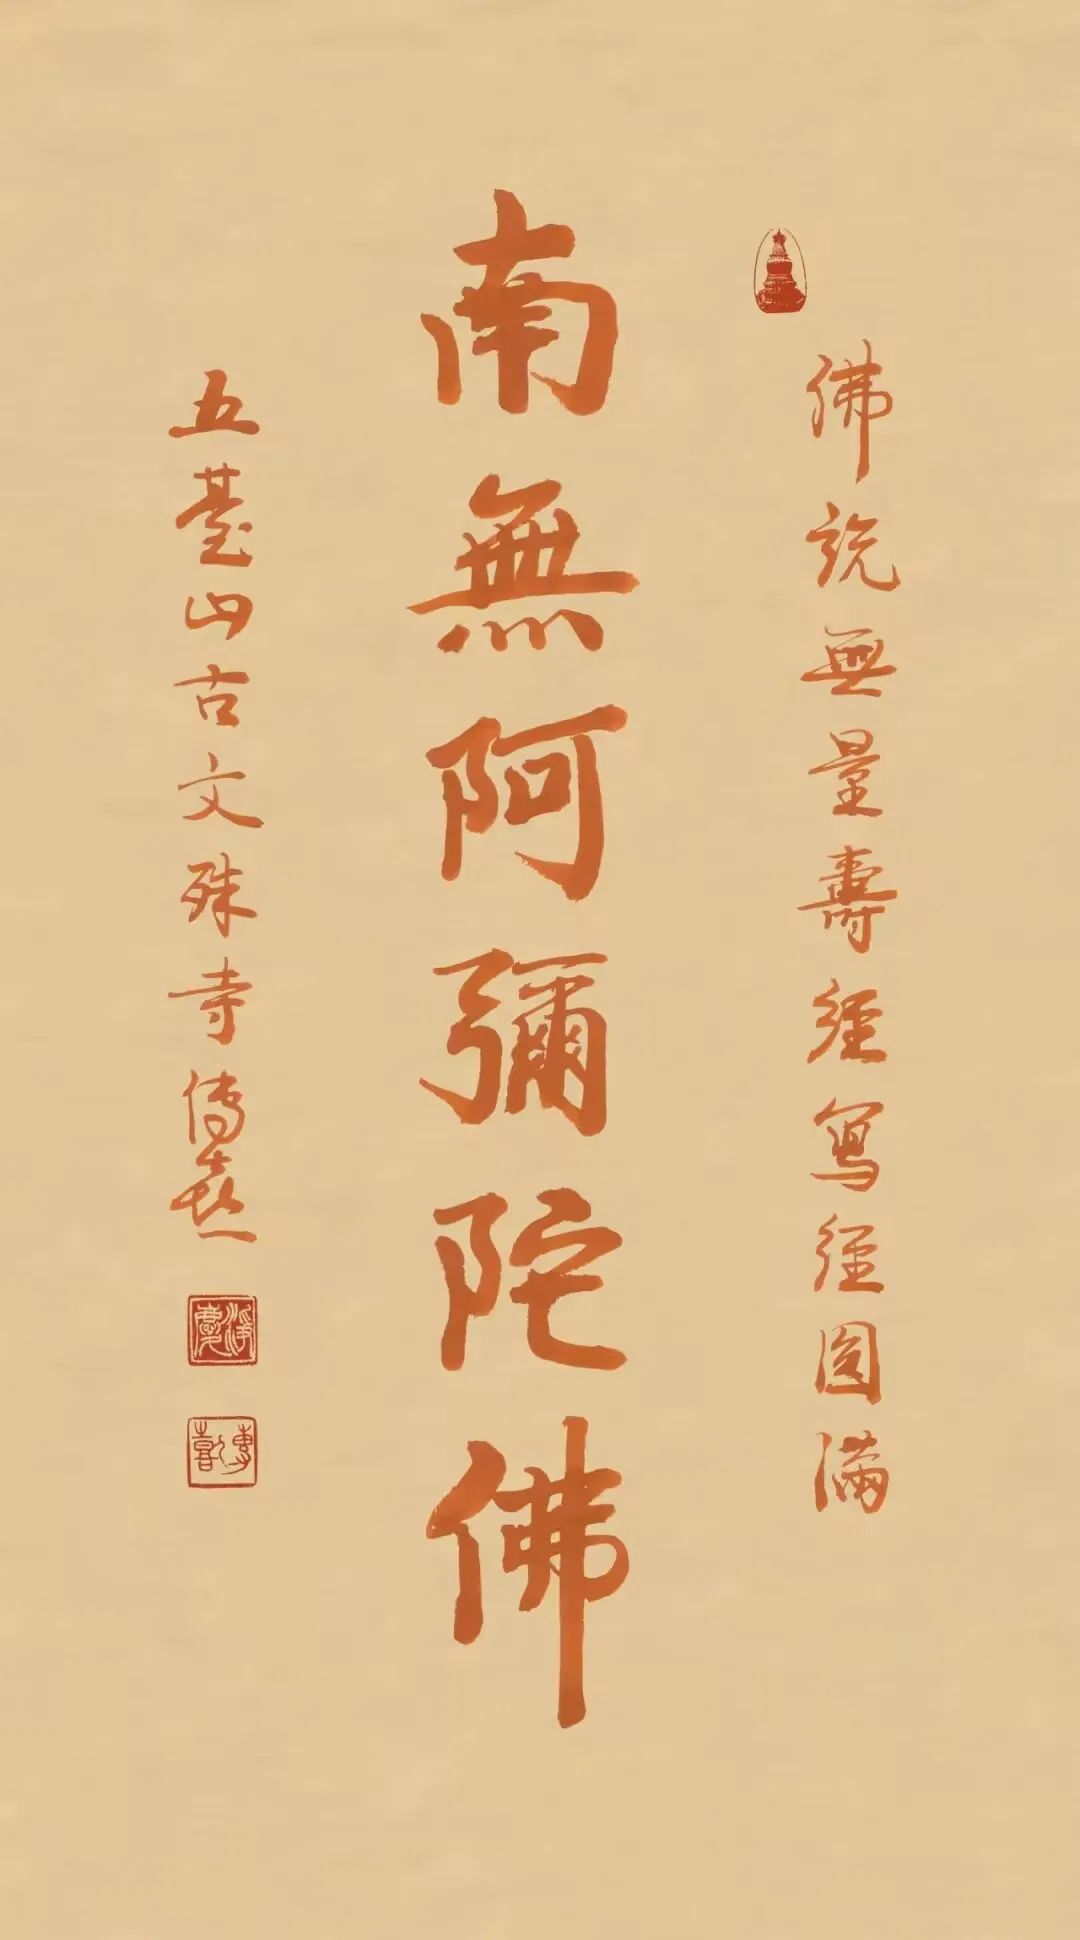 佛說無量壽經寫經圓滿
南無阿彌陀佛
五臺山古文殊寺傳喜
淨慶
傳喜